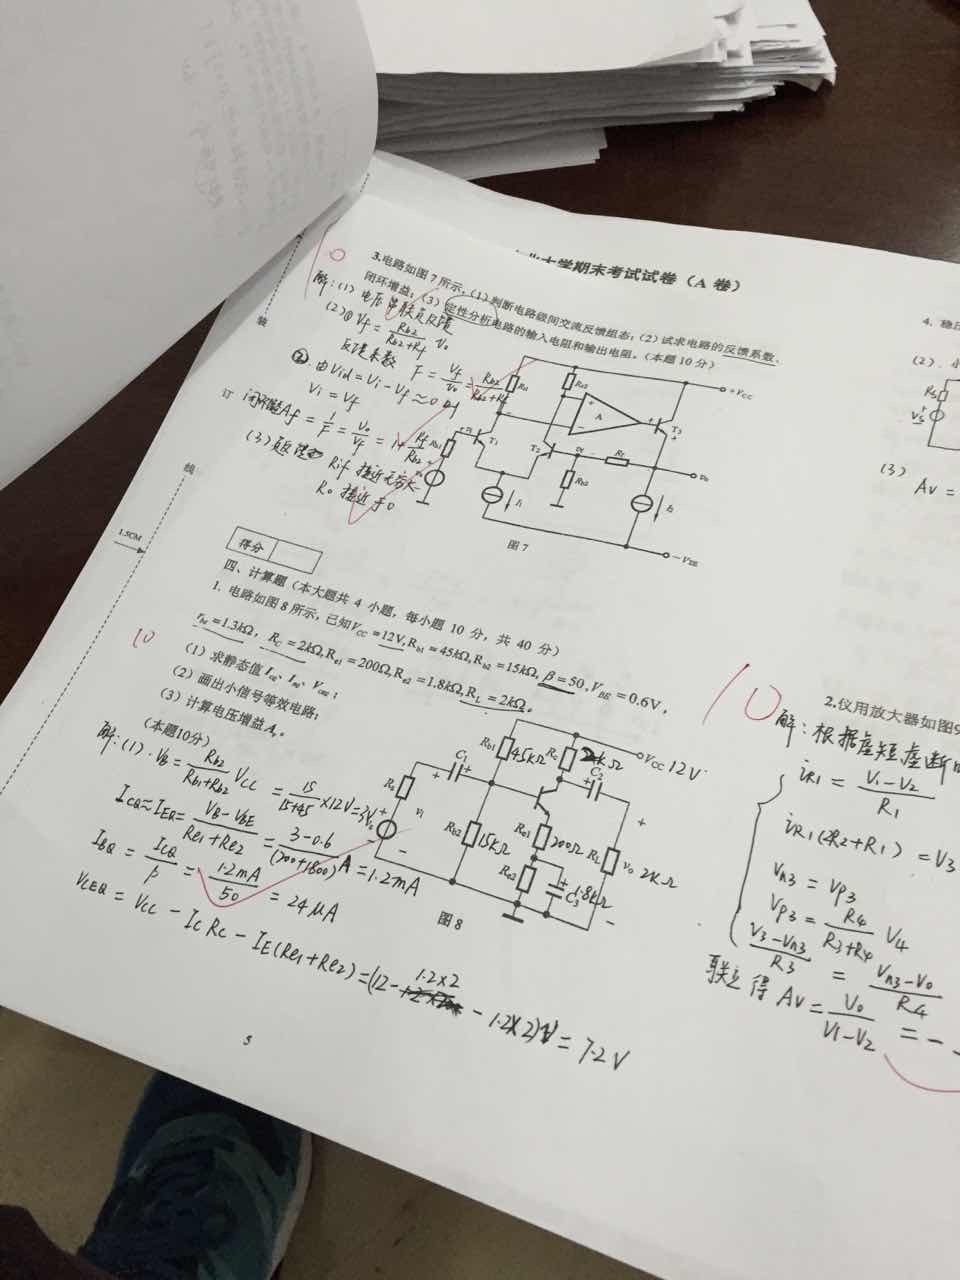 大学期末考试试卷（A 卷）
10
3.电路如图 7 所示，(1) 判断电路级间交流反馈组态；(2) 试求电路的反馈系数、
闭环增益；(3) 定性分析电路的输入电阻和输出电阻。（本题 10 分）
解：(1) 电压串联负反馈
(2)① Vf = Rb2/(Rb2+Rf) Vo
反馈系数 F = Vf/Vo = Rb2/(Rb2+Rf)
②. 由 Vid = Vi - Vf ≈ 0 得
Vi = Vf
闭环增益 Af = 1/F = Vo/Vf = 1+ Rf/Rb2
(3) 负反馈 Rif 接近无穷大
Ro 接近于0
+VCC
A
T1
T2
T3
Rb1
Rb2
Rf
vo
I1
I2
-VEE
图 7
装
订
线
1.5CM
得分
四、计算题（本大题共 4 小题，每小题 10 分，共 40 分）
1. 电路如图 8 所示，已知VCC =12V,Rb1 = 45kΩ,Rb2 =15kΩ, β = 50, VBE = 0.6V，
rbe =1.3kΩ， RC = 2kΩ,Re1 = 200Ω,Re2 =1.8kΩ,RL = 2kΩ。
(1) 求静态值 ICQ、IBQ、VCEQ；
(2) 画出小信号等效电路；
(3) 计算电压增益 Av。
（本题10分）
10
解：(1). VB = Rb2/(Rb1+Rb2) VCC = 15/(15+45) ×12V = 3V
ICQ ≈ IEQ = (VB - VBE)/(Re1+Re2) = (3-0.6)/(200+1800) A = 1.2mA
IBQ = ICQ/β = 1.2mA/50 = 24μA
VCEQ = VCC - IC RC - IE(Re1+Re2) = (12 - 1.2×2 - 1.2×2)V = 7.2V
Rb1 45kΩ
Rc 2kΩ
VCC 12V
C1
C2
Rs
vi
vs
Rb2 15kΩ
Re1 200Ω
RL
vo 2kΩ
Re2
C3 1.8kΩ
图 8
5
4. 稳压
(2). 小
Rs
Vs
(3) Av =
10
2.仪用放大器如图9
解：根据虚短虚断
iR1 = (V1-V2)/R1
iR1(2R2+R1) = V3
Vn3 = Vp3
Vp3 = R4/(R3+R4) V4
(V3-Vn3)/R3 = (Vn3-Vo)/R4
联立得 Av = Vo/(V1-V2) = -